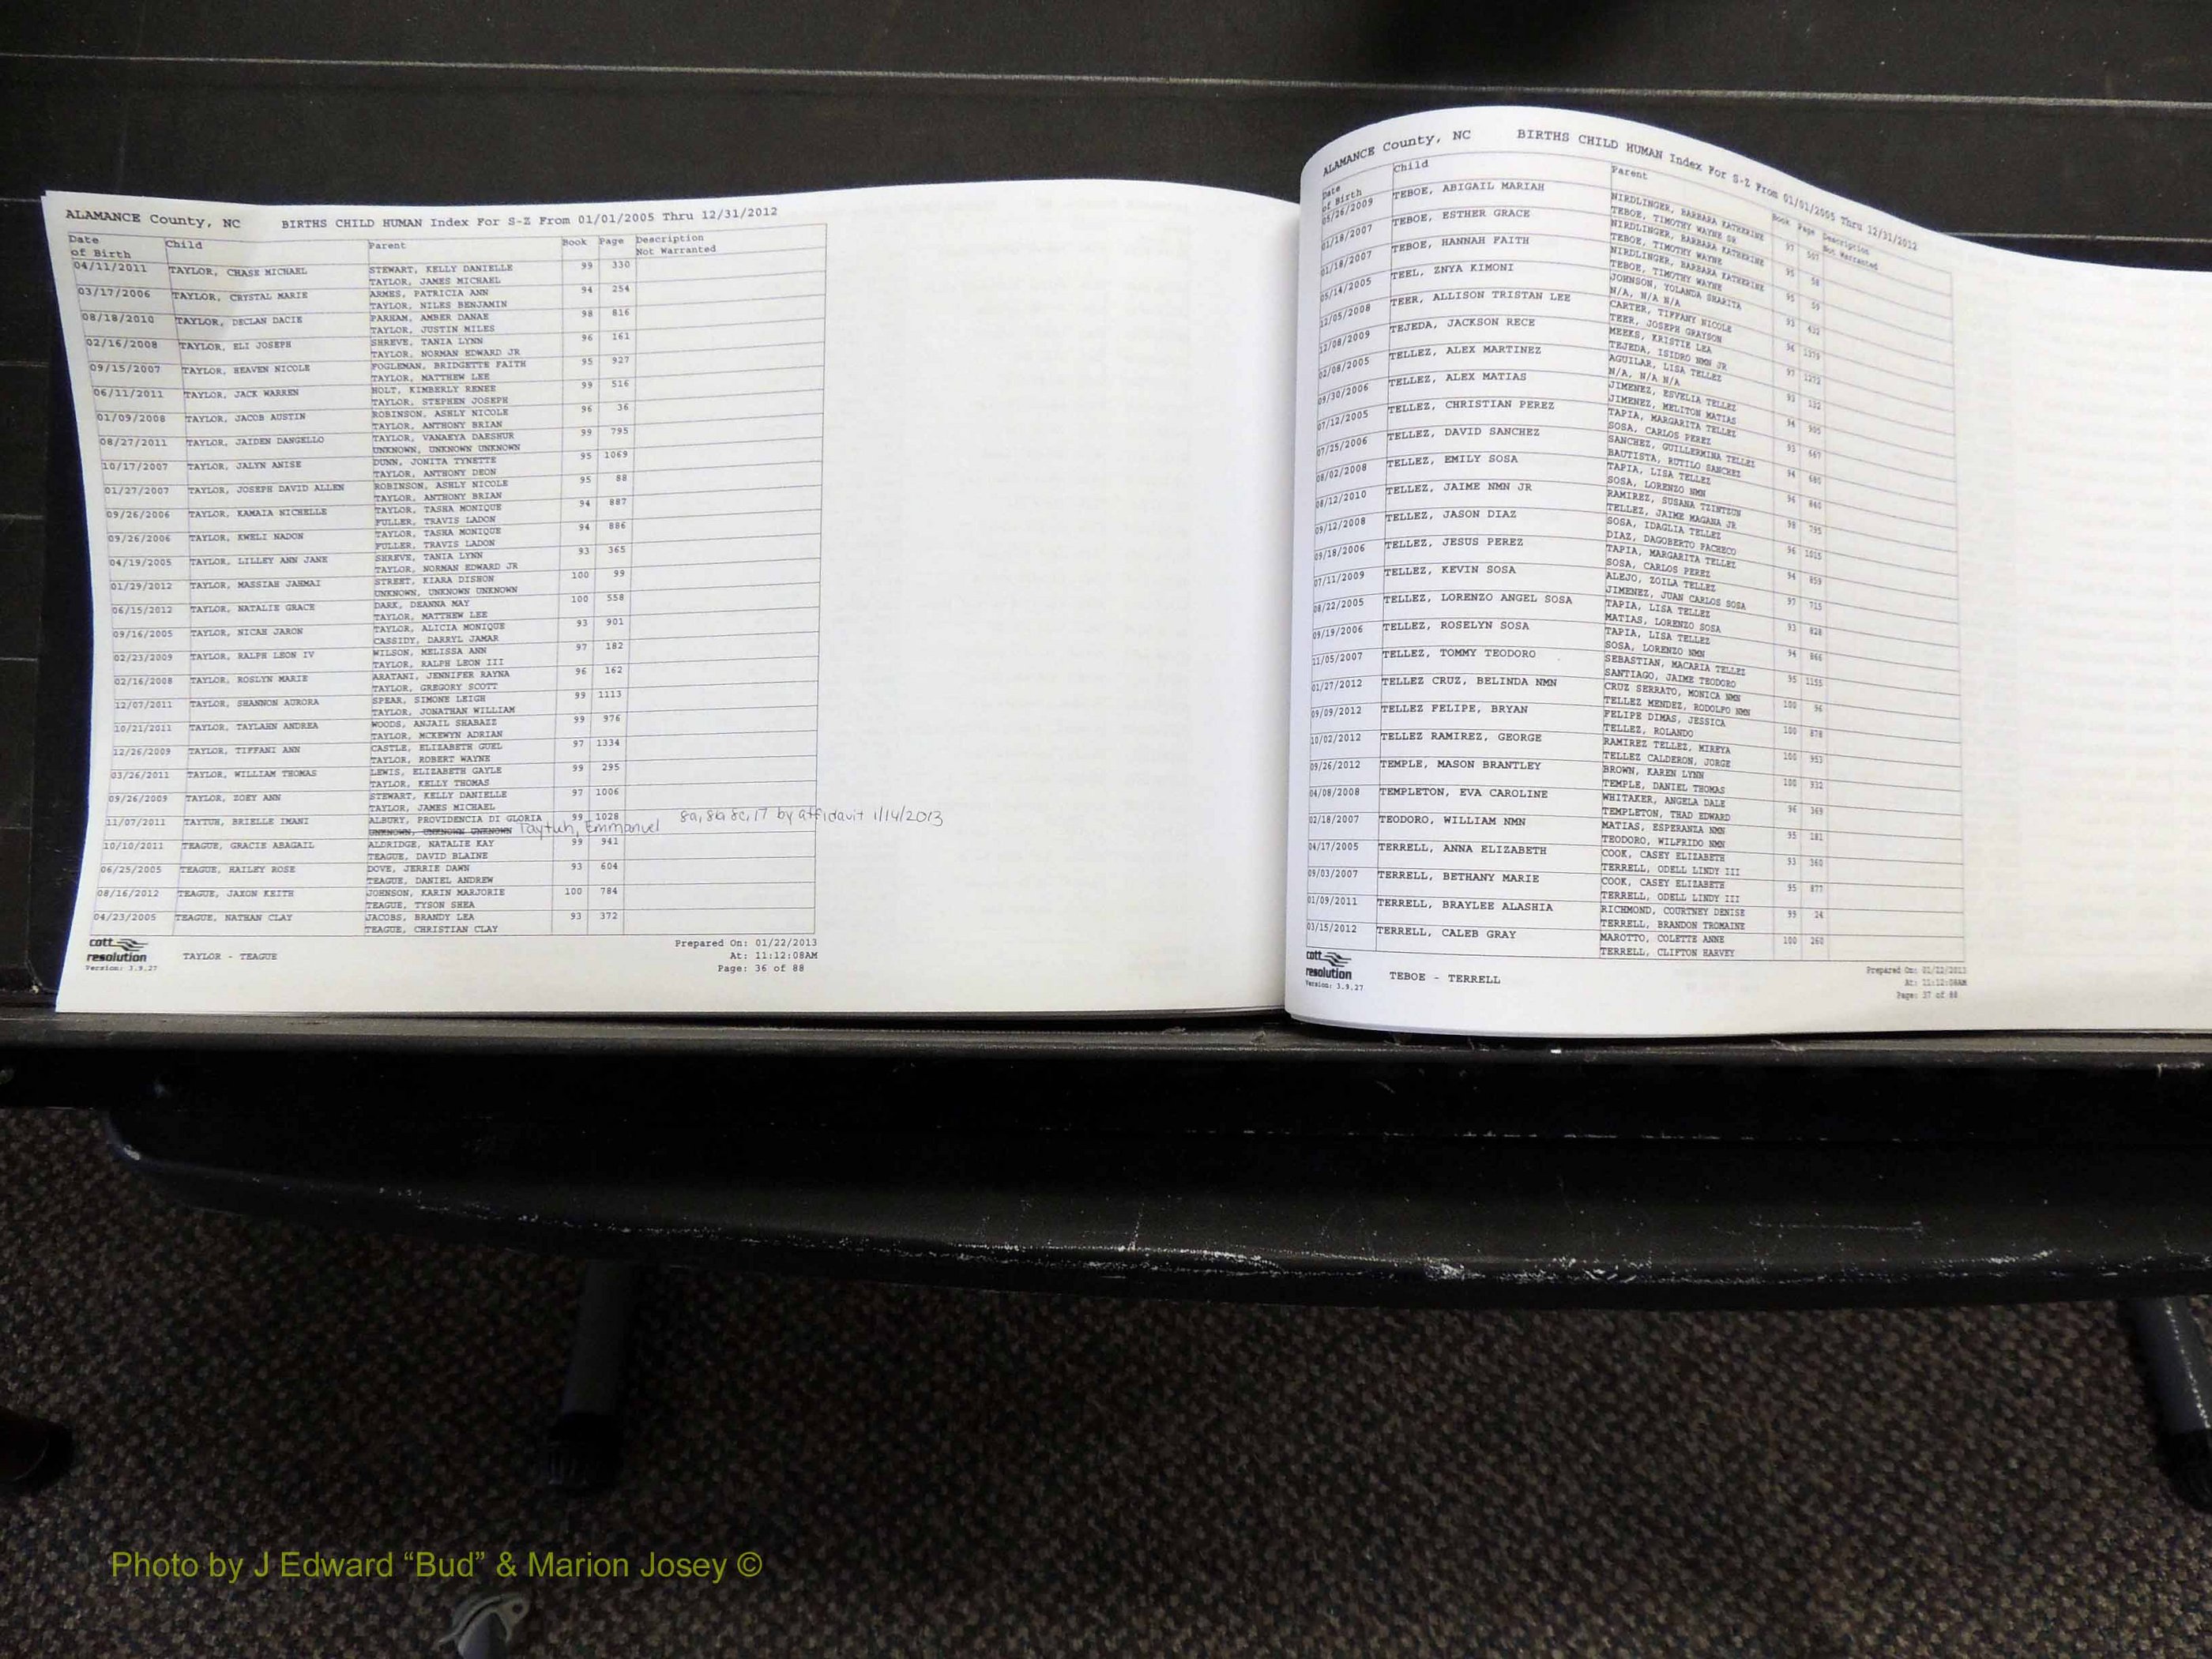 ALAMANCE County, NC BIRTHS CHILD HUMAN Index For S-Z From 01/01/2005 Thru 12/31/2012
Date of Birth Child Parent Book Page Description Not Warranted
04/11/2011 TAYLOR, CHASE MICHAEL STEWART, KELLY DANIELLE 99 330
TAYLOR, JAMES MICHAEL
03/17/2006 TAYLOR, CRYSTAL MARIE ARMES, PATRICIA ANN 94 254
TAYLOR, NILES BENJAMIN
08/18/2010 TAYLOR, DECLAN DACIE PARHAM, AMBER DANAE 98 816
TAYLOR, JUSTIN MILES
02/16/2008 TAYLOR, ELI JOSEPH SHREVE, TANIA LYNN 96 161
TAYLOR, NORMAN EDWARD JR
09/15/2007 TAYLOR, HEAVEN NICOLE FOGLEMAN, BRIDGETTE FAITH 95 927
TAYLOR, MATTHEW LEE
06/11/2011 TAYLOR, JACK WARREN HOLT, KIMBERLY RENEE 99 516
TAYLOR, STEPHEN JOSEPH
01/09/2008 TAYLOR, JACOB AUSTIN ROBINSON, ASHLY NICOLE 96 36
TAYLOR, ANTHONY BRIAN
08/27/2011 TAYLOR, JAIDEN DANGELLO TAYLOR, VANAEYA DAESHUR 99 795
UNKNOWN, UNKNOWN UNKNOWN
10/17/2007 TAYLOR, JALYN ANISE DUNN, JONITA TYNETTE 95 1069
TAYLOR, ANTHONY DEON
01/27/2007 TAYLOR, JOSEPH DAVID ALLEN ROBINSON, ASHLY NICOLE 95 88
TAYLOR, ANTHONY BRIAN
09/26/2006 TAYLOR, KAMAIA NICHELLE TAYLOR, TASHA MONIQUE 94 887
FULLER, TRAVIS LADON
09/26/2006 TAYLOR, KWELI NADON TAYLOR, TASHA MONIQUE 94 886
FULLER, TRAVIS LADON
04/19/2005 TAYLOR, LILLEY ANN JANE SHREVE, TANIA LYNN 93 365
TAYLOR, NORMAN EDWARD JR
01/29/2012 TAYLOR, MASSIAH JAHMAI STREET, KIARA DISHON 100 99
UNKNOWN, UNKNOWN UNKNOWN
06/15/2012 TAYLOR, NATALIE GRACE DARK, DEANNA MAY 100 558
TAYLOR, MATTHEW LEE
09/16/2005 TAYLOR, NICAH JARON TAYLOR, ALICIA MONIQUE 93 901
CASSIDY, DARRYL JAMAR
02/23/2009 TAYLOR, RALPH LEON IV WILSON, MELISSA ANN 97 182
TAYLOR, RALPH LEON III
02/16/2008 TAYLOR, ROSLYN MARIE ARATANI, JENNIFER RAYNA 96 162
TAYLOR, GREGORY SCOTT
12/07/2011 TAYLOR, SHANNON AURORA SPEAR, SIMONE LEIGH 99 1113
TAYLOR, JONATHAN WILLIAM
10/21/2011 TAYLOR, TAYLAHN ANDREA WOODS, ANJAIL SHABAZZ 99 976
TAYLOR, MCKEWYN ADRIAN
12/26/2009 TAYLOR, TIFFANI ANN CASTLE, ELIZABETH GUEL 97 1334
TAYLOR, ROBERT WAYNE
03/26/2011 TAYLOR, WILLIAM THOMAS LEWIS, ELIZABETH GAYLE 99 295
TAYLOR, KELLY THOMAS
09/26/2009 TAYLOR, ZOEY ANN STEWART, KELLY DANIELLE 97 1006
TAYLOR, JAMES MICHAEL
11/07/2011 TAYTUH, BRIELLE IMANI ALBURY, PROVIDENCIA DI GLORIA 99 1028 8a, 8b, 8c, 17 by affidavit 1/14/2013
UNKNOWN, UNKNOWN UNKNOWN Taytuh, Emmanuel
10/10/2011 TEAGUE, GRACIE ABAGAIL ALDRIDGE, NATALIE KAY 99 941
TEAGUE, DAVID BLAINE
06/25/2005 TEAGUE, HAILEY ROSE DOVE, JERRIE DAWN 93 604
TEAGUE, DANIEL ANDREW
08/16/2012 TEAGUE, JAXON KEITH JOHNSON, KARIN MARJORIE 100 784
TEAGUE, TYSON SHEA
04/23/2005 TEAGUE, NATHAN CLAY JACOBS, BRANDY LEA 93 372
TEAGUE, CHRISTIAN CLAY
cott resolution Version: 3.9.27
TAYLOR - TEAGUE
Prepared On: 01/22/2013
At: 11:12:08AM
Page: 36 of 88
ALAMANCE County, NC BIRTHS CHILD HUMAN Index For S-Z From 01/01/2005 Thru 12/31/2012
Date of Birth Child Parent Book Page Description Not Warranted
05/26/2009 TEBOE, ABIGAIL MARIAH NIRDLINGER, BARBARA KATHERINE 97 507
TEBOE, TIMOTHY WAYNE SR
01/18/2007 TEBOE, ESTHER GRACE NIRDLINGER, BARBARA KATHERINE 95 58
TEBOE, TIMOTHY WAYNE
01/18/2007 TEBOE, HANNAH FAITH NIRDLINGER, BARBARA KATHERINE 95 59
TEBOE, TIMOTHY WAYNE
05/14/2005 TEEL, ZNYA KIMONI JOHNSON, YOLANDA SHARITA 93 432
N/A, N/A N/A
12/05/2008 TEER, ALLISON TRISTAN LEE CARTER, TIFFANY NICOLE 96 1379
TEER, JOSEPH GRAYSON
12/08/2009 TEJEDA, JACKSON RECE MEEKS, KRISTIE LEA 97 1272
TEJEDA, ISIDRO NMN JR
02/08/2005 TELLEZ, ALEX MARTINEZ AGUILAR, LISA TELLEZ 93 132
N/A, N/A N/A
09/30/2006 TELLEZ, ALEX MATIAS JIMENEZ, ESVELIA TELLEZ 94 905
JIMENEZ, MELITON MATIAS
07/12/2005 TELLEZ, CHRISTIAN PEREZ TAPIA, MARGARITA TELLEZ 93 667
SOSA, CARLOS PEREZ
07/25/2006 TELLEZ, DAVID SANCHEZ SANCHEZ, GUILLERMINA TELLEZ 94 680
BAUTISTA, RUTILO SANCHEZ
08/02/2008 TELLEZ, EMILY SOSA TAPIA, LISA TELLEZ 96 840
SOSA, LORENZO NMN
08/12/2010 TELLEZ, JAIME NMN JR RAMIREZ, SUSANA TZINTZUN 98 795
TELLEZ, JAIME MAGANA JR
09/12/2008 TELLEZ, JASON DIAZ SOSA, IDAGLIA TELLEZ 96 1015
DIAZ, DAGOBERTO PACHECO
09/18/2006 TELLEZ, JESUS PEREZ TAPIA, MARGARITA TELLEZ 94 859
SOSA, CARLOS PEREZ
07/11/2009 TELLEZ, KEVIN SOSA ALEJO, ZOILA TELLEZ 97 715
JIMENEZ, JUAN CARLOS SOSA
08/22/2005 TELLEZ, LORENZO ANGEL SOSA TAPIA, LISA TELLEZ 93 828
MATIAS, LORENZO SOSA
09/19/2006 TELLEZ, ROSELYN SOSA TAPIA, LISA TELLEZ 94 866
SOSA, LORENZO NMN
11/05/2007 TELLEZ, TOMMY TEODORO SEBASTIAN, MACARIA TELLEZ 95 1155
SANTIAGO, JAIME TEODORO
01/27/2012 TELLEZ CRUZ, BELINDA NMN CRUZ SERRATO, MONICA NMN 100 96
TELLEZ MENDEZ, RODOLFO NMN
09/09/2012 TELLEZ FELIPE, BRYAN FELIPE DIMAS, JESSICA 100 878
TELLEZ, ROLANDO
10/02/2012 TELLEZ RAMIREZ, GEORGE RAMIREZ TELLEZ, MIREYA 100 953
TELLEZ CALDERON, JORGE
09/26/2012 TEMPLE, MASON BRANTLEY BROWN, KAREN LYNN 100 932
TEMPLE, DANIEL THOMAS
04/08/2008 TEMPLETON, EVA CAROLINE WHITAKER, ANGELA DALE 96 369
TEMPLETON, THAD EDWARD
02/18/2007 TEODORO, WILLIAM NMN MATIAS, ESPERANZA NMN 95 181
TEODORO, WILFRIDO NMN
04/17/2005 TERRELL, ANNA ELIZABETH COOK, CASEY ELIZABETH 93 360
TERRELL, ODELL LINDY III
09/03/2007 TERRELL, BETHANY MARIE COOK, CASEY ELIZABETH 95 877
TERRELL, ODELL LINDY III
01/09/2011 TERRELL, BRAYLEE ALASHIA RICHMOND, COURTNEY DENISE 99 24
TERRELL, BRANDON TROMAINE
03/15/2012 TERRELL, CALEB GRAY MAROTTO, COLETTE ANNE 100 260
TERRELL, CLIFTON HARVEY
cott resolution Version: 3.9.27
TEBOE - TERRELL
Prepared On: 01/22/2013
At: 11:12:08AM
Page: 37 of 88
Photo by J Edward “Bud” & Marion Josey ©